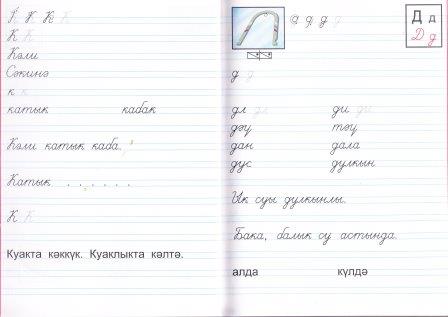 К К К К
К К
Кәли
Сәкинә
к к
катык кабак
Кәли катык каба.
Катык . . . . . .
К К
Куакта кәккүк. Куаклыкта кәлтә.
д д д д
Д д
Д д
д д
дл дл ди ди
дәү тәү
дан дала
дус дулкын
Ик суы дулкынлы.
Бака, балык су астында.
алда күлдә